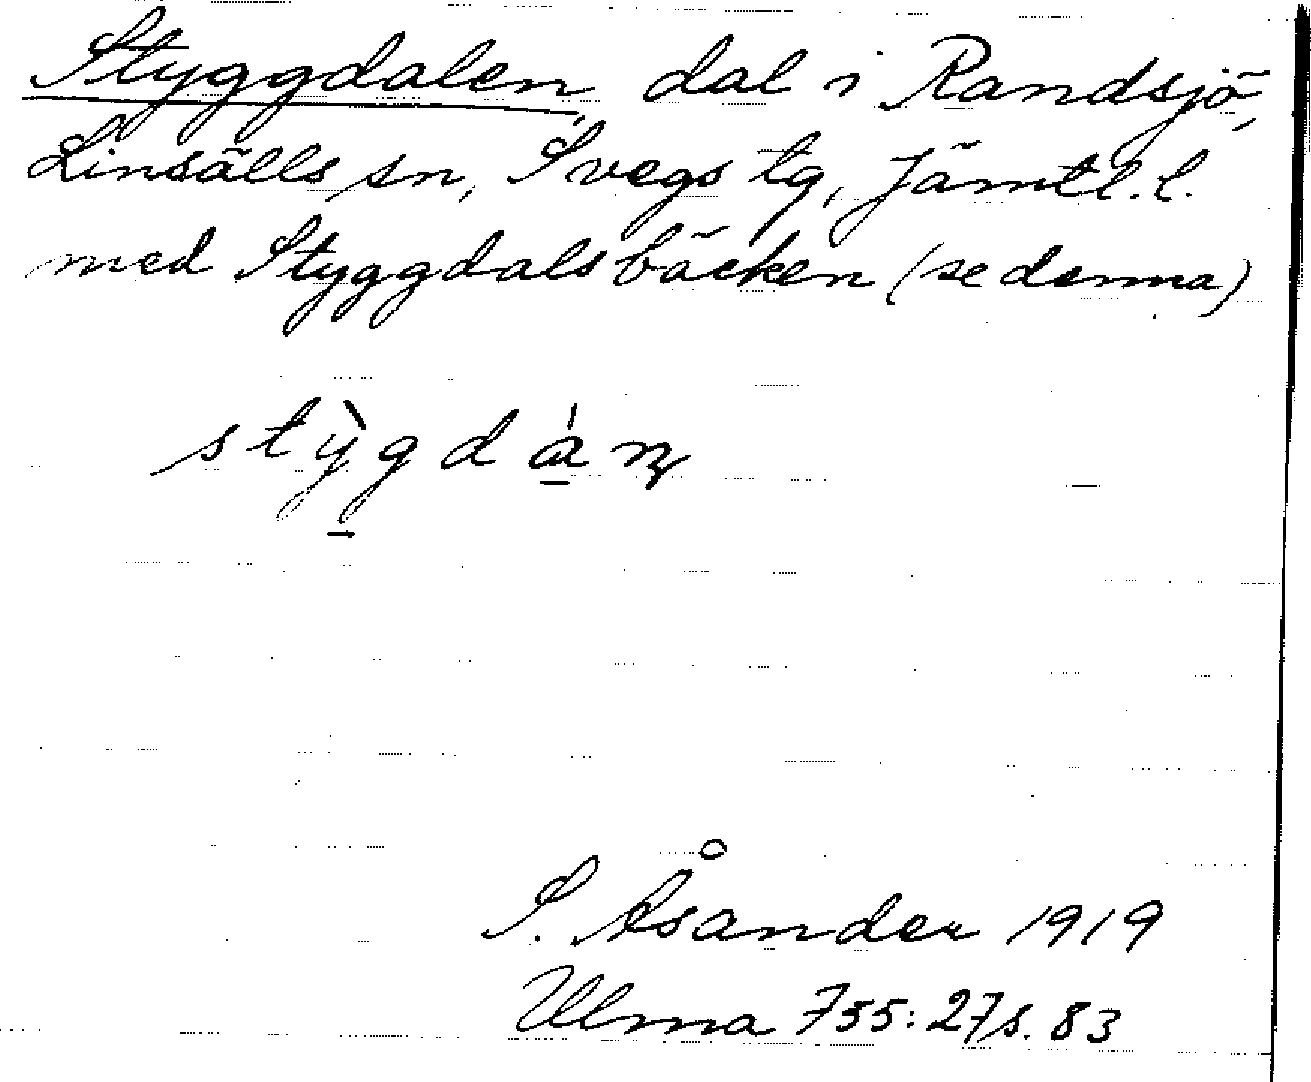 Styggdalen, dal i Randsjö,
Linsälls sn, Svegs tg, Jämtl. l.
med Styggdalsbäcken (se denna)
stỳgdáṇ
S. Åsander 1919
Ulma 755:27 s. 83